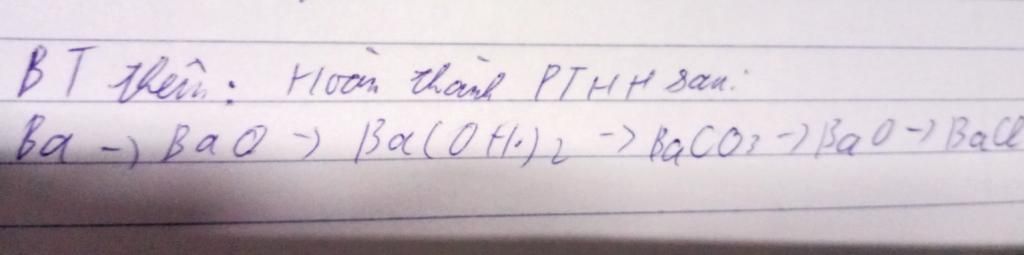 BT thêm: Hoàn thành PTHH sau:
Ba -> BaO -> Ba(OH)2 -> BaCO3 -> BaO -> BaCl